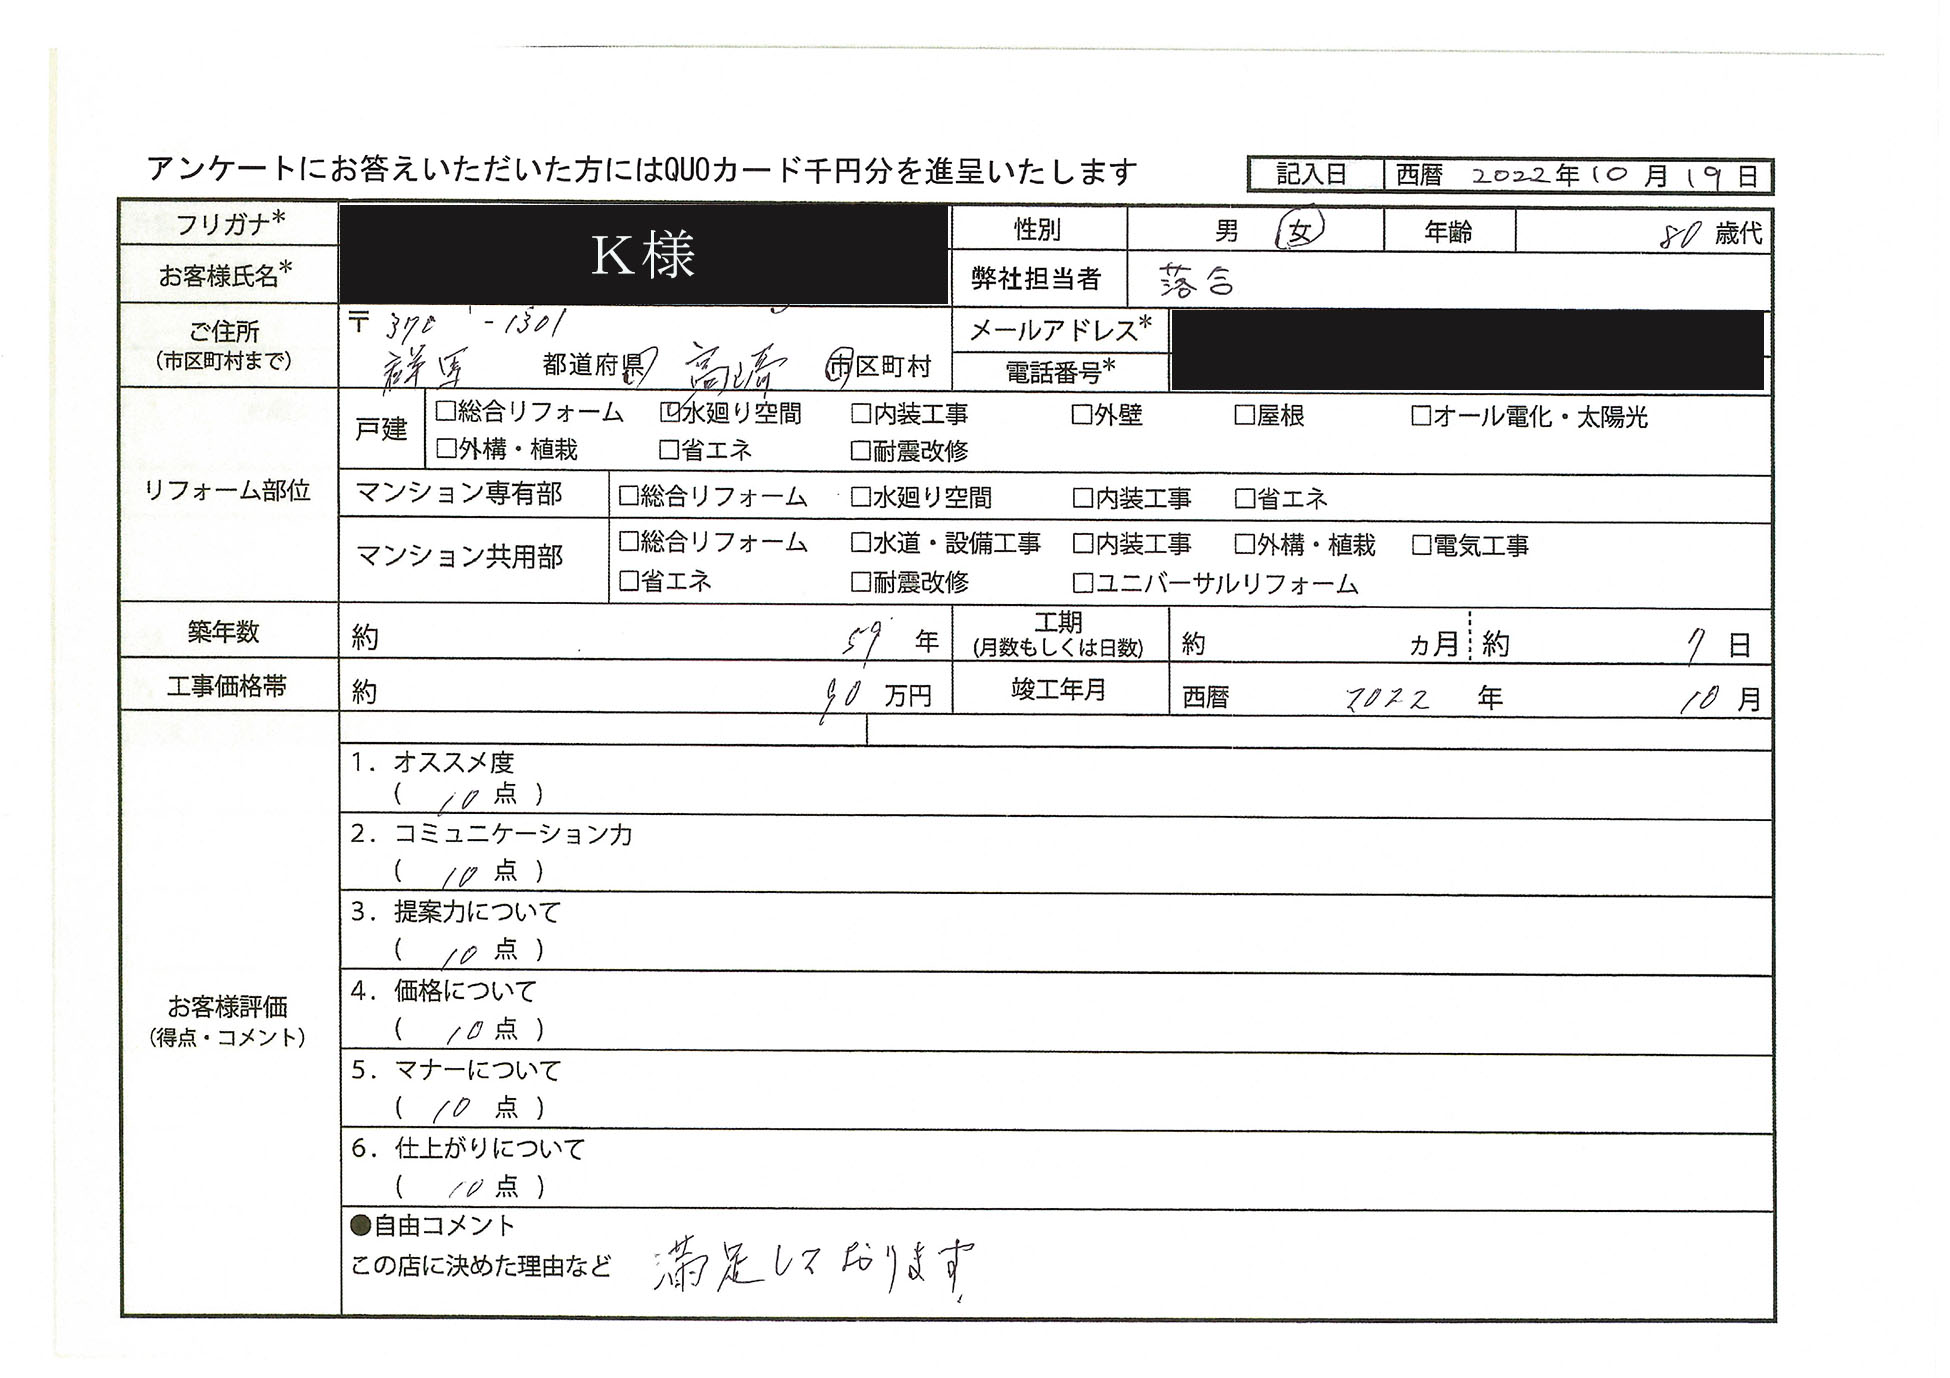 アンケートにお答えいただいた方にはQUOカード千円分を進呈いたします
記入日 西暦 2022年10月19日
フリガナ* K様 性別 男 女 年齢 80歳代
お客様氏名* 弊社担当者 落合
ご住所 (市区町村まで) 〒370-1301 メールアドレス*
群馬 都道府県 高崎 市区町村 電話番号*
リフォーム部位
戸建 □総合リフォーム ☑水廻り空間 □内装工事 □外壁 □屋根 □オール電化・太陽光
□外構・植栽 □省エネ □耐震改修
マンション専有部 □総合リフォーム □水廻り空間 □内装工事 □省エネ
マンション共用部 □総合リフォーム □水道・設備工事 □内装工事 □外構・植栽 □電気工事
□省エネ □耐震改修 □ユニバーサルリフォーム
築年数 約 59年 工期 (月数もしくは日数) 約 カ月 約 7日
工事価格帯 約 90万円 竣工年月 西暦 2022年 10月
お客様評価
(得点・コメント)
1. オススメ度
( 10点 )
2. コミュニケーション力
( 10点 )
3. 提案力について
( 10点 )
4. 価格について
( 10点 )
5. マナーについて
( 10点 )
6. 仕上がりについて
( 10点 )
●自由コメント
この店に決めた理由など 満足しております